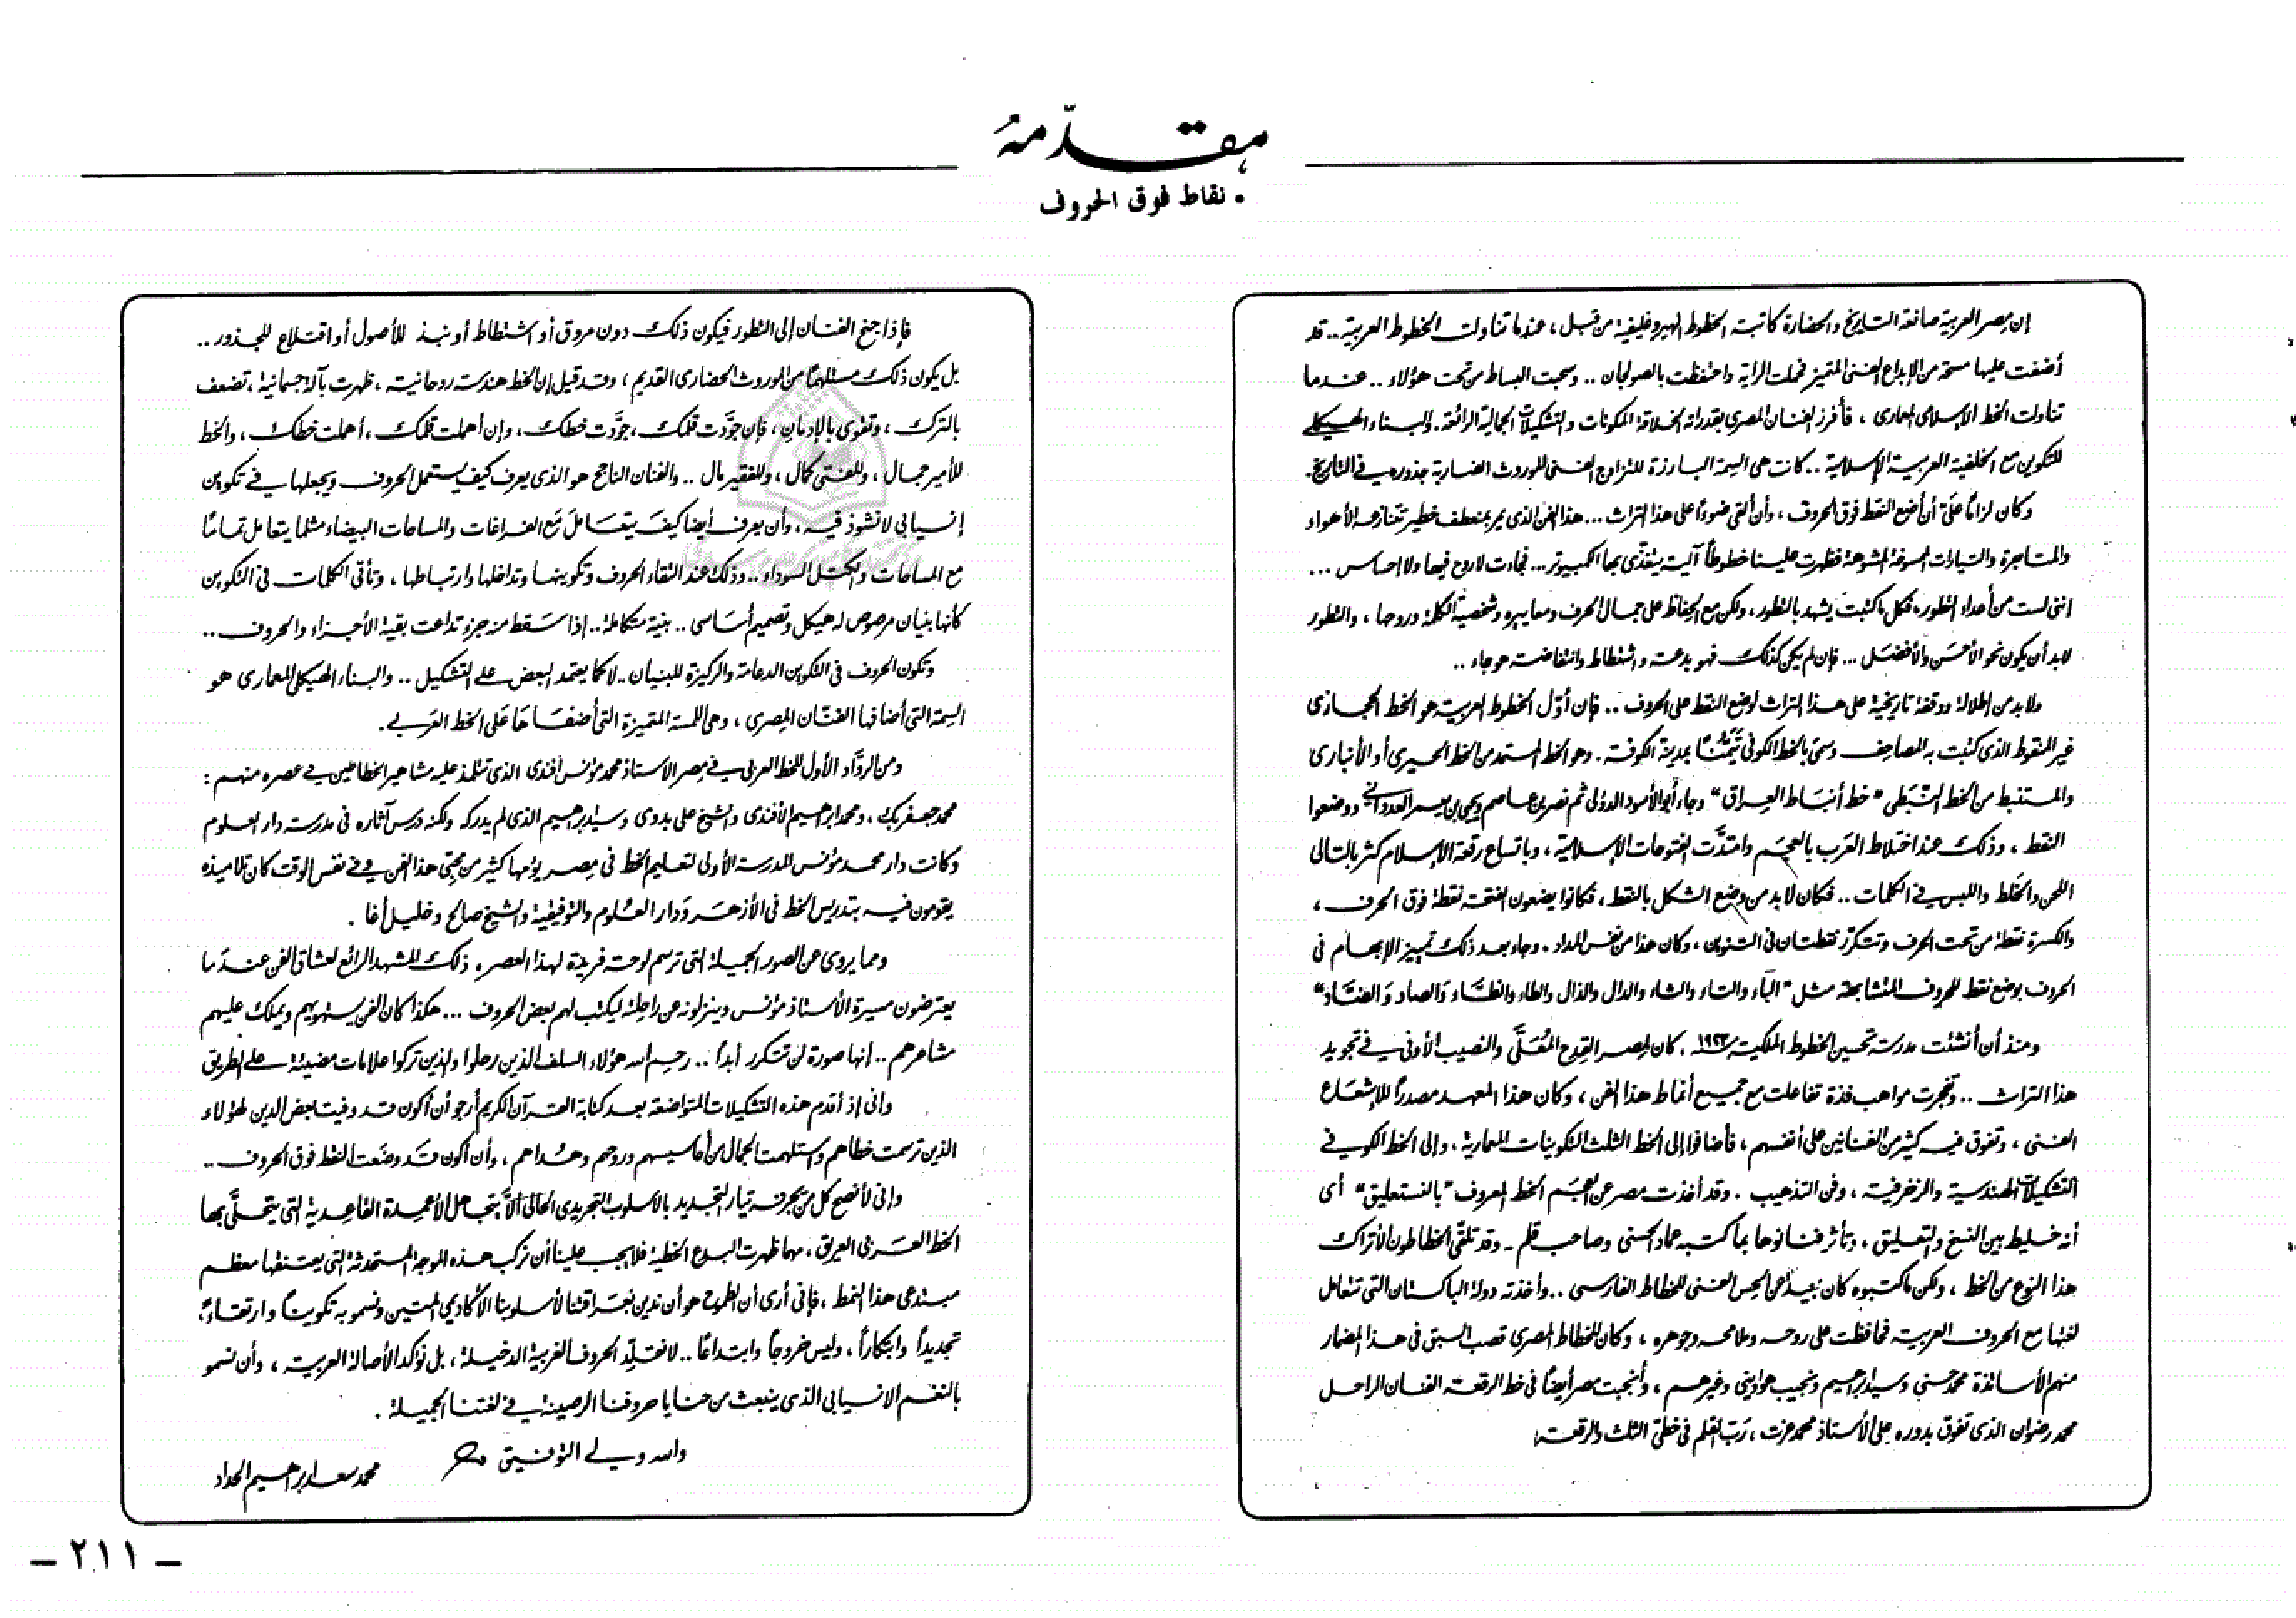 مقدّمة
• نقاط فوق الحروف
إن مصر العربية صانعة التاريخ والحضارة كاتبة الخطوط الهيروغليفية من قبل ، عندما تناولت الخطوط العربية .. قد
أضفت عليها مسحة من الإبداع الفنى المتميز فحملت الراية واحتفظت بالصولجان .. وسحبت البساط من تحت هؤلاء .. عندما
تناولت الخط الإسلامى المعمارى ، فأفرز الفنان المصرى بقدراته الخلاقة المكونات والتشكيلات الجمالية الرائعة . والبناء الهيكلى
للتكوين مع الخلفية العربية الإسلامية .. كانت هى السمة البارزة للتزاوج الفنى للموروث الضاربة جذوره فى التاريخ .
وكان لزاماً علىّ أن أضع النقط فوق الحروف ، وأن ألقى ضوءاً على هذا التراث ... هذا الفن الذى يمر بمنعطف خطير تتنازعه الأهواء
والمتاجرة والتيارات المشوهة فظهرت علينا خطوطاً آلية يتغذّى بها الكمبيوتر ... فجاءت لا روح فيها ولا احساس ...
اننى لست من أعداء التطور ، فكل ما كتبت يشهد بالتطور ، ولكن مع الحفاظ على جمال الحرف ومعاييره وشخصية الكلمة وروحها ، والتطور
لابد أن يكون نحو الأحسن والأفضل ... فإن لم يكن كذلك فهو بدعة واشتطاط وانتفاضة هوجاء ..
ولابد من إطلالة ووقفة تاريخية على هذا التراث لوضع النقط على الحروف .. فإن أوّل الخطوط العربية هو الخط الحجازى
غير المنقوط الذى كتبت به المصاحف وسمى بالخط الكوفى تَيَمُّناً بمدينة الكوفة . وهو الخط المستمد من الخط الحيرى أو الأنبارى
والمستنبط من الخط النبطى "خط أنباط العراق" وجاء أبو الأسود الدؤلى ثم نصر بن عاصم ويحيى بن يعمر العدوانى ووضعوا
النقط ، وذلك عند اختلاط العرب بالعجم وامتدّت الفتوحات الإسلامية ، وباتساع رقعة الإسلام كثر بالتالى
اللحن والخلط واللبس فى الكلمات .. فكان لابد من وضع الشكل بالنقط ، فكانوا يضعون الفتحة نقطة فوق الحرف ،
والكسرة نقطة من تحت الحرف وتتكرّر نقطتان فى التنوين ، وكان هذا من نفس المداد . وجاء بعد ذلك تمييز الإبهام فى
الحروف بوضع نقط للحروف المتشابهة مثل "الباء والتاء والثاء والدال والذال والطاء والظاء والصاد والضاد"
ومنذ أن أنشئت مدرسة تحسين الخطوط الملكية سنة ١٩٢٢ ، كان لمصر القدح المُعَلَّى والنصيب الأوفى فى تجويد
هذا التراث .. وتفجرت مواهب فذة تفاعلت مع جميع أنماط هذا الفن ، وكان هذا المعهد مصدراً للإشعاع
الفنى ، وتفوق فيه كثير من الفنانين على أنفسهم ، فأضافوا إلى الخط الثلث التكوينات المعمارية ، وإلى الخط الكوفى
التشكيلات الهندسية والزخرفية ، وفن التذهيب . وقد أخذت مصر عن العجم الخط المعروف "بالنستعليق" أى
أنه خليط بين النسخ والتعليق ، وتأثر فنانوها بما كتبه عماد الحسنى وصاحب قلم - وقد تلقى الخطاطون الأتراك
هذا النوع من الخط ، ولكن ما كتبوه كان بعيداً عن الحس الفنى للخطاط الفارسى .. وأخذته دولة الباكستان التى تتعامل
لغتها مع الحروف العربية فحافظت على روحه وملامحه وجوهره ، وكان للخطاط المصرى قصب السبق فى هذا المضمار
منهم الأساتذة محمد حسنى وسيد إبراهيم ونجيب هواوينى وغيرهم ، وأنجبت مصر أيضاً فى خط الرقعة الفنان الراحل
محمد رضوان الذى تفوق بدوره على الأستاذ محمد عزت ، ربّ القلم فى خطى الثلث والرقعة
فإذا جنح الفنان إلى التطور فيكون ذلك دون مروق أو اشتطاط أو نبذ للأصول أو اقتلاع للجذور ..
بل يكون ذلك مستلهماً من الموروث الحضارى القديم ، وقد قيل إن الخط هندسة روحانية ، ظهرت بآلة جسمانية ، تضعف
بالترك ، وتقوى بالإدمان ، فإن جوّدت قلمك ، جوّدت خطك ، وإن أهملت قلمك ، أهملت خطك ، والخط
للأمير جمال ، وللغنى كمال ، وللفقير مال .. والفنان الناجح هو الذى يعرف كيف يستعمل الحروف ويجعلها فى تكوين
إنسيابى لا نشوز فيه ، وأن يعرف أيضا كيف يتعامل مع الفراغات والمساحات البيضاء مثلما يتعامل تماماً
مع المساحات والكتل السوداء .. وذلك عند التقاء الحروف وتكوينها وتداخلها وارتباطها ، وتأتى الكلمات فى التكوين
كأنها بنيان مرصوص له هيكل وتصميم أساسى .. بنية متكاملة .. إذا سقط منه جزء تداعت بقية الأجزاء والحروف ..
وتكون الحروف فى التكوين الدعامة والركيزة للبنيان .. لا كما يعتمد البعض على التشكيل .. والبناء الهيكلى المعمارى هو
السمة التى أضافها الفنّان المصرى ، وهى اللمسة المتميزة التى أضفاها على الخط العربى .
ومن الروّاد الأول للخط العربى فى مصر الاستاذ محمد مؤنس افندى الذى تتلمذ عليه مشاهير الخطاطين فى عصره منهم :
محمد جعفر بك ، ومحمد ابراهيم الأفندى والشيخ على بدوى وسيد إبراهيم الذى لم يدركه ولكنه درس آثاره فى مدرسة دار العلوم
وكانت دار محمد مؤنس المدرسة الأولى لتعليم الخط فى مصر يؤمها كثير من محبّى هذا الفن وفى نفس الوقت كان تلاميذه
يقومون فيه بتدريس الخط فى الأزهر ودار العلوم والتوفيقية والشيخ صالح وخليل أغا .
ومما يروى عن الصور الجميلة التى ترسم لوحة فريدة لهذا العصر ، ذلك المشهد الرائع لعشاق الفن عندما
يعترضون مسيرة الأستاذ مؤنس وينزلونه عن راحلته ليكتب لهم بعض الحروف ... هكذا كان الفن يستهويهم ويملك عليهم
مشاعرهم .. إنها صورة لن تتكرر أبداً .. رحم الله هؤلاء السلف الذين رحلوا والذين تركوا علامات مضيئة على الطريق
وانى إذ أقدم هذه التشكيلات المتواضعة بعد كتابة القرآن الكريم أرجو أن أكون قد وفيت بعض الدين لهؤلاء
الذين ترسمت خطاهم واستلهمت الجمال من أحاسيسهم وروحهم وهداهم ، وأن أكون قد وضعت النقط فوق الحروف ..
وإنى لأنصح كل من يجرفه تيار التجديد بالأسلوب التجريدى الحالى ألاّ يتجاهل الأعمدة القاعدية التى يتحلّى بها
الخط العربى العريق ، مهما ظهرت البدع الخطية فلا يجب علينا أن نركب هذه الموجة المستحدثة التى يعتنقها معظم
مبتدعى هذا النمط ، فإنى أرى أن الطموح هو أن ندين بعراقتنا لأسلوبنا الأكاديمى المتين ونسمو به تكويناً وارتقاءً ،
تجديداً وابتكاراً ، وليس خروجاً وابتداعاً .. لا نقلّد الحروف الغربية الدخيلة ، بل نؤكد الأصالة العربية ، وأن نسمو
بالنغم الانسيابى الذى ينبعث من حنايا حروفنا الرصينة فى لغتنا الجميلة .
والله ولى التوفيق
محمد سعد ابراهيم الحداد
- ٢١١ -